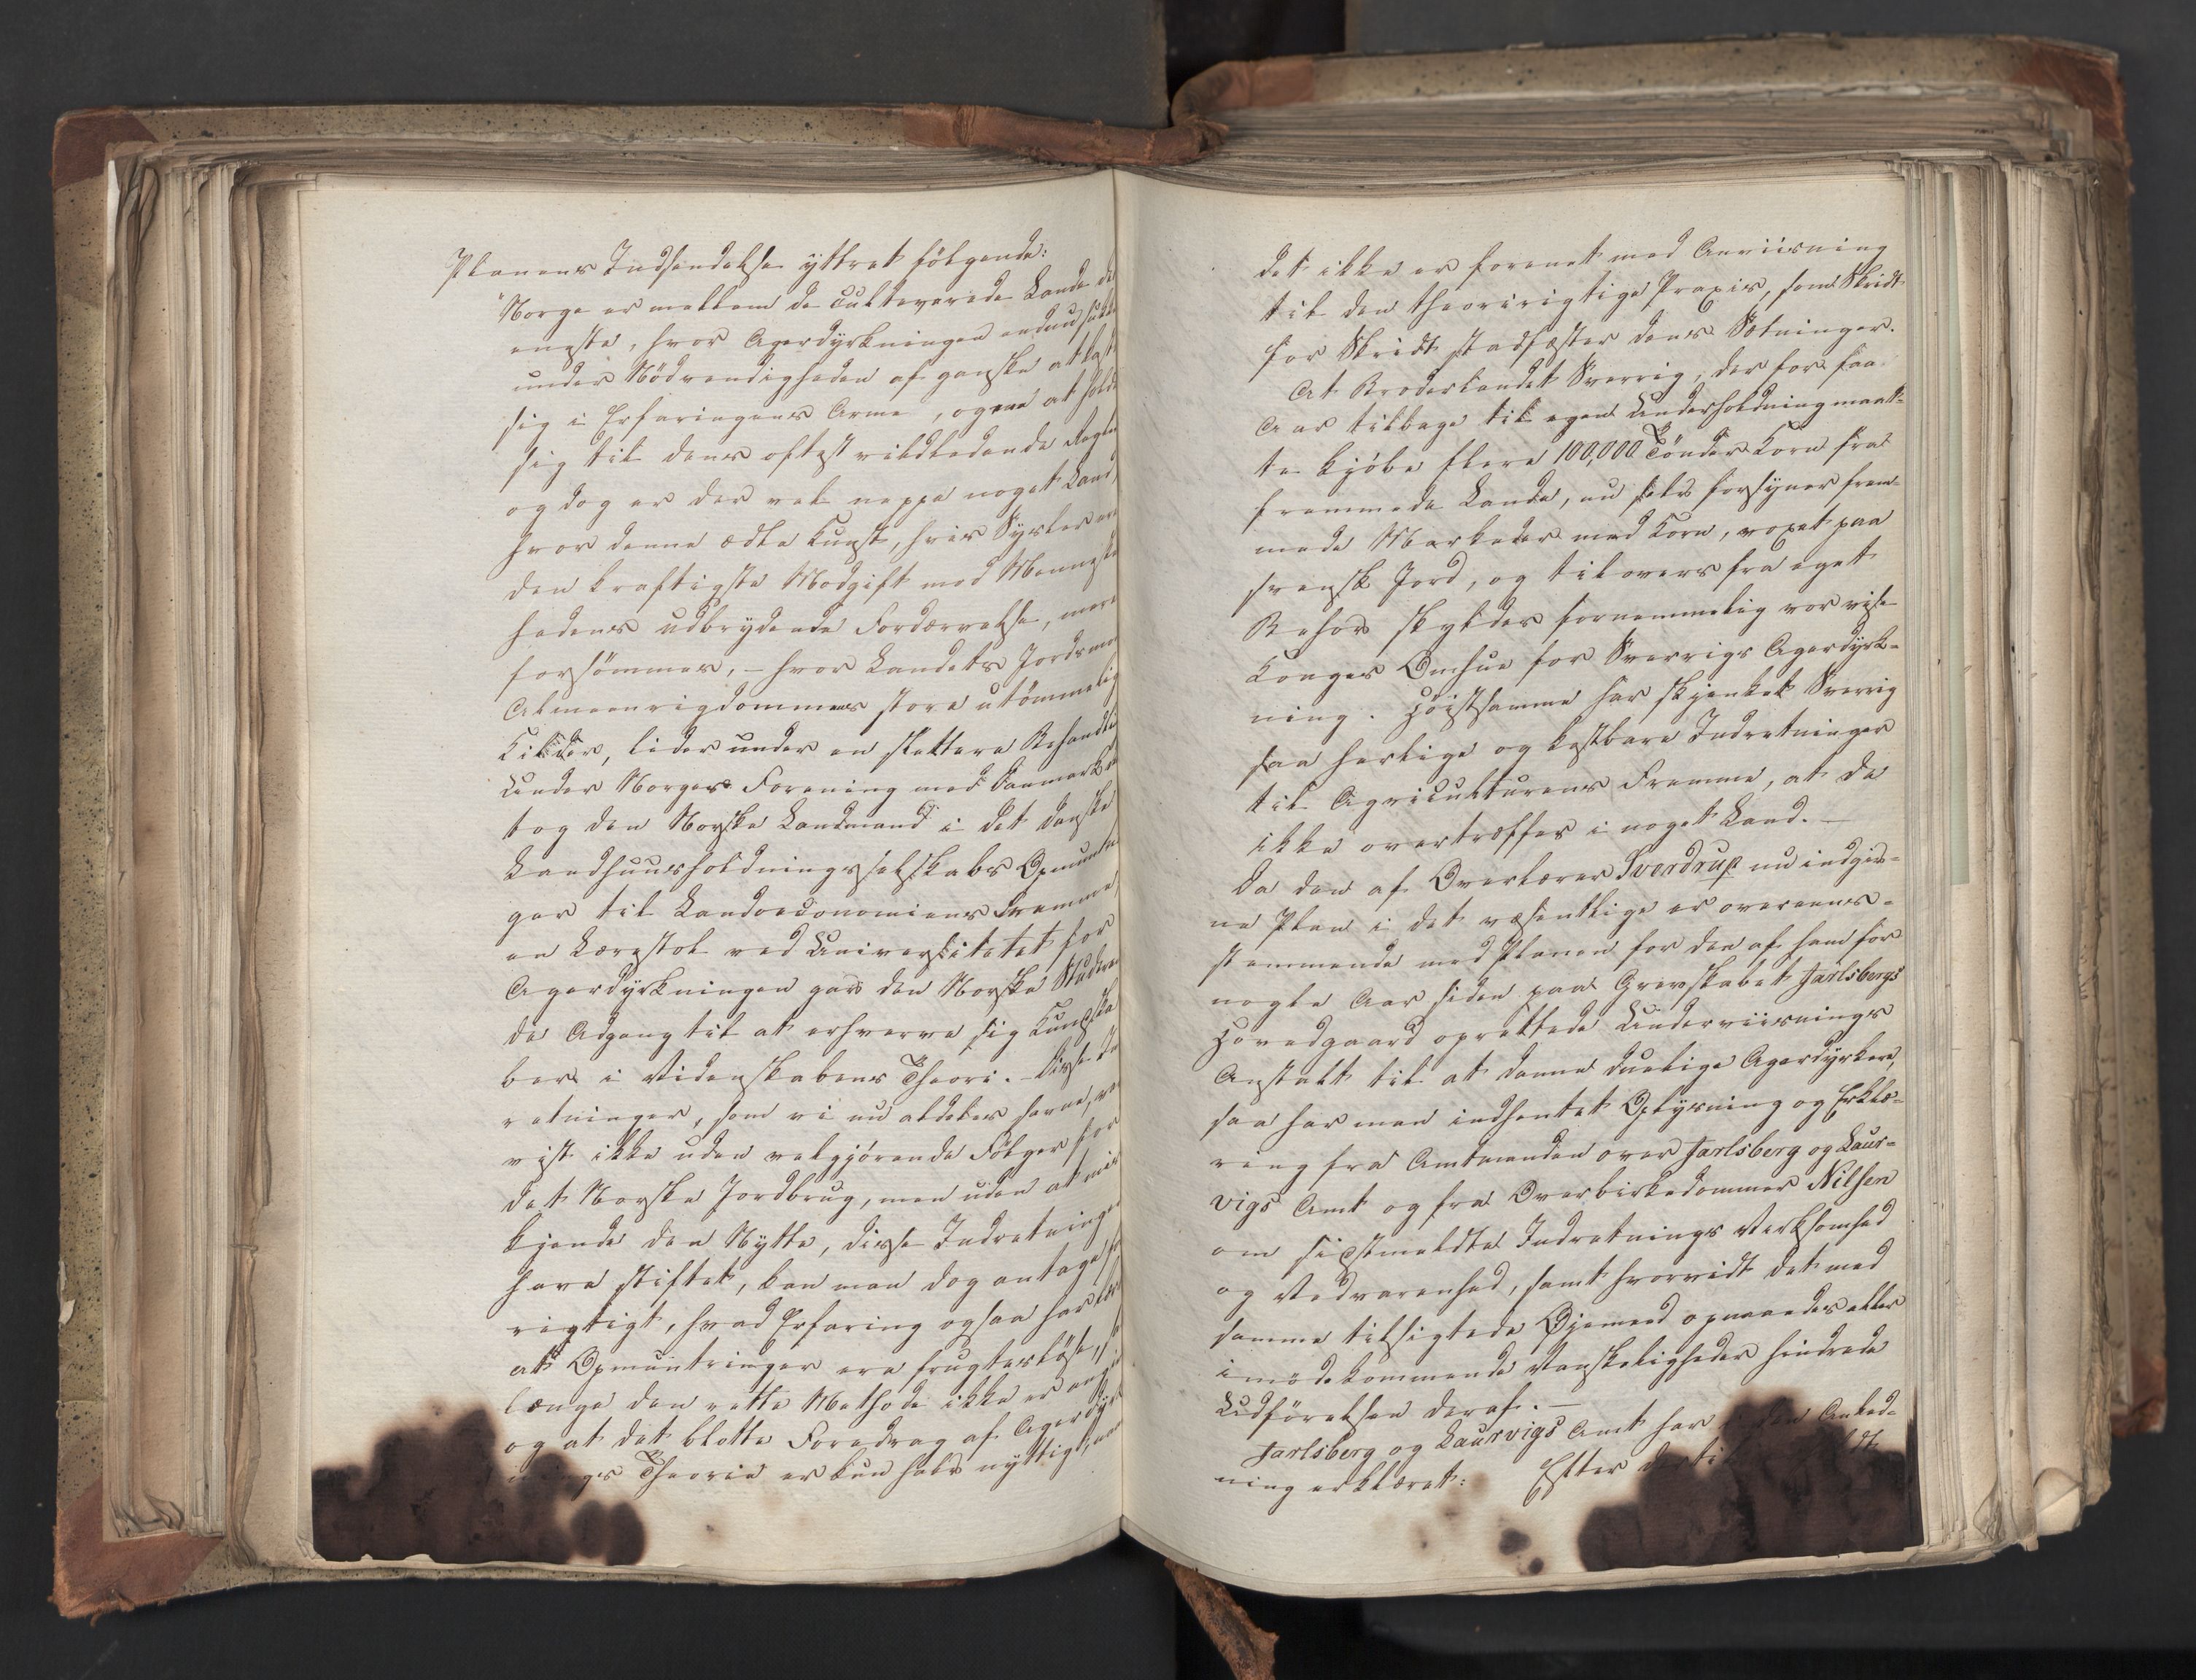 Planens Indsendelse yttret følgende:
"Norge er mellem de cultiverede Lande det
eneste, hvor Agerdyrkningen endnu sukker
under Nødvendigheden af ganske at kaste
sig i Erfaringens Arme, og ene at holde
sig til dens oftest vildledende Regler
og dog er der vel neppe noget Land,
hvor denne ædle Kunst, hvis Sysler ere
den kraftigste Modgift mod Menneske
hedens udbrydende Fordærvelse, mere
forsømmes, – hvor Landets Jordsmon
Almeenrigdommens store utømmelige
Kilder, lider under en slettere Behandling
Under Norges Forening med Danmark
tog den Norske Landmand i det danske
Landhuusholdningsselskabs Opmuntrin
ger til Landoeconomiens Fremme,
en Lærestol ved Universitetet for
Agerdyrkningen gav den Norske Studeren
de Adgang til at erhverve sig Kundska
ber i Videnskabens Theori. – Disse Ind
retninger, som vi nu aldeles savne, vare
vist ikke uden velgjørende Følger for
det Norske Jordbrug, men uden at mis
kjende den Nytte, disse Indretninger
have stiftet, kan man dog antage for
rigtigt, hvad Erfaring ogsaa har lært
at Opmuntringer ere frugtesløse, saa
længe den rette Methode ikke er
og at det blotte Foredrag af Agerdyrk
nings Theorie er kun halv nyttigt, naar
det ikke er forenet med Anviisning
til den theoririgtige Praxis, som Skridt
for Skridt stadfæster dens Sætninger.
At Broderlandet Sverrig, der for faa
Aar tilbage til egen Underholdning maat-
te kjøbe flere 100,000 Tønder Korn fra
fremmede Lande, nu selv forsyner frem-
mede Markeder med Korn, voxet paa
svensk Jord, og tilovers fra eget
Behov skyldes fornemmelig vor vise
Konges Omhue for Sverrigs Agerdyrk-
ning. Høistsamme har skjenket Sverrig
saa herlige og kostbare Indretninger
til Agriculturens Fremme, at de
ikke overtræffes i noget Land. –
Da den af Overlærer Sverdrup nu indgiv-
ne Plan i det væsentlige er overeens-
stemmende med Planen for den af ham for
nogle Aar siden paa Grevskabet Jarlsbergs
Hovedgaard oprettede Underviisnings
Anstalt til at danne duelige Agerdyrkere,
saa har man indhentet Oplysning og Erklæ-
ring fra Amtmanden over Jarlsberg og Laur-
vigs Amt og fra Overbirkedommer Nilsen
om sidstmeldte Indretnings Virksomhed
og Vedvarenhed, samt hvorvidt det med
samme tilsigtede Øjemeed opnaaedes eller
imødekommende Vanskeligheder hindrede
Udførelsen deraf. –
Jarlsberg og Laurvigs Amt har i den Anled-
ning erklæret: Efter